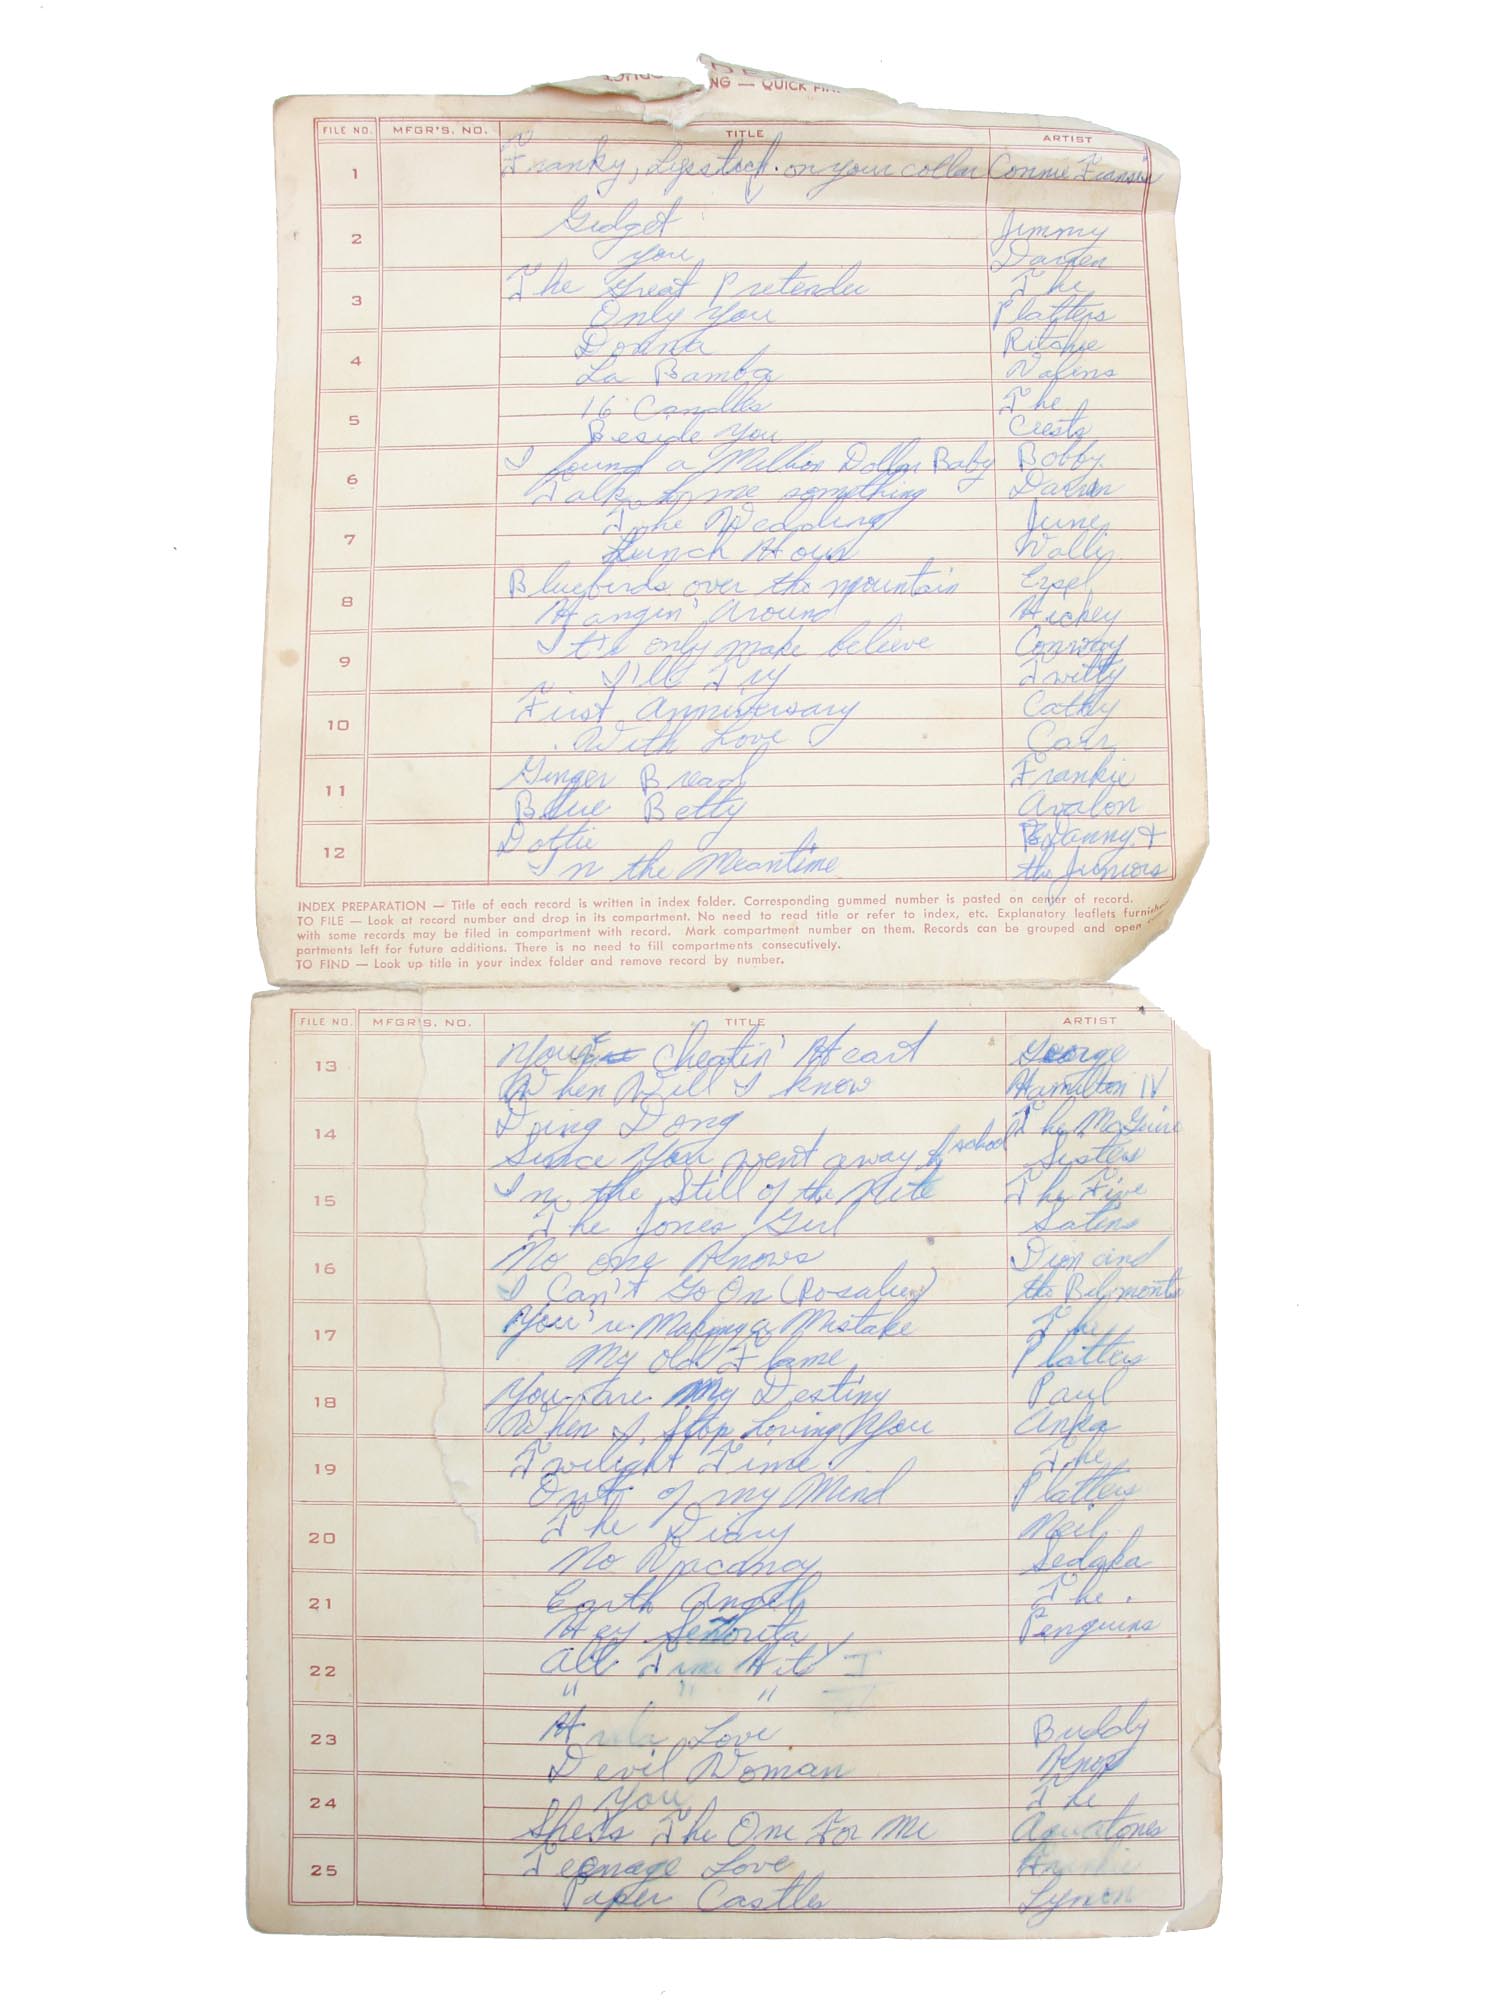 NG — QUICK
FILE NO. MFGR'S. NO. TITLE ARTIST
1 Franky, Lipstock. on your collar Connie Fransis
2 Gidget Jimmy
you Darren
3 The Great Pretender The
Only You Platters
4 Donna Ritchie
La Bamba Valens
5 16 Candles The
Beside You Crests
6 I found a Million Dollar Baby Bobby
Talk to me something Darrin
7 The Wedding June
Lunch Hour Valli
8 Bluebirds over the mountain Ersel
Hangin' Around Hickey
9 It's only make believe Conway
I'll Try Twitty
10 First Anniversary Cathy
With Love Carr
11 Ginger Bread Frankie
Blue Betty Avalon
12 Dottie Danny &
In the Meantime the Juniors
INDEX PREPARATION — Title of each record is written in index folder. Corresponding gummed number is pasted on center of record.
TO FILE — Look at record number and drop in its compartment. No need to read title or refer to index, etc. Explanatory leaflets furnished
with some records may be filed in compartment with record. Mark compartment number on them. Records can be grouped and open com-
partments left for future additions. There is no need to fill compartments consecutively.
TO FIND — Look up title in your index folder and remove record by number.
FILE NO. MFGR'S. NO. TITLE ARTIST
13 Your Cheatin' Heart George
When Will I know Hamilton IV
14 Ding Dong The McGuire
Since You went away to school Sisters
15 In the Still of the Nite The Five
The Jones Girl Satins
16 No one Knows Dion and
I Can't Go On (Rosalie) the Belmonts
17 You're Making a Mistake The
My old Flame Platters
18 You are My Destiny Paul
When I Stop Loving You Anka
19 Twilight Time The
Out of my Mind Platters
20 The Diary Neil
No Vacancy Sedaka
21 Earth Angel The
Hey Señorita Penguins
22 All Time Hits I
" " "
23 Hula Love Buddy
Devil Woman Knox
24 You The
She's The One For Me Aquatones
25 Teenage Love Frankie
Paper Castles Lymon